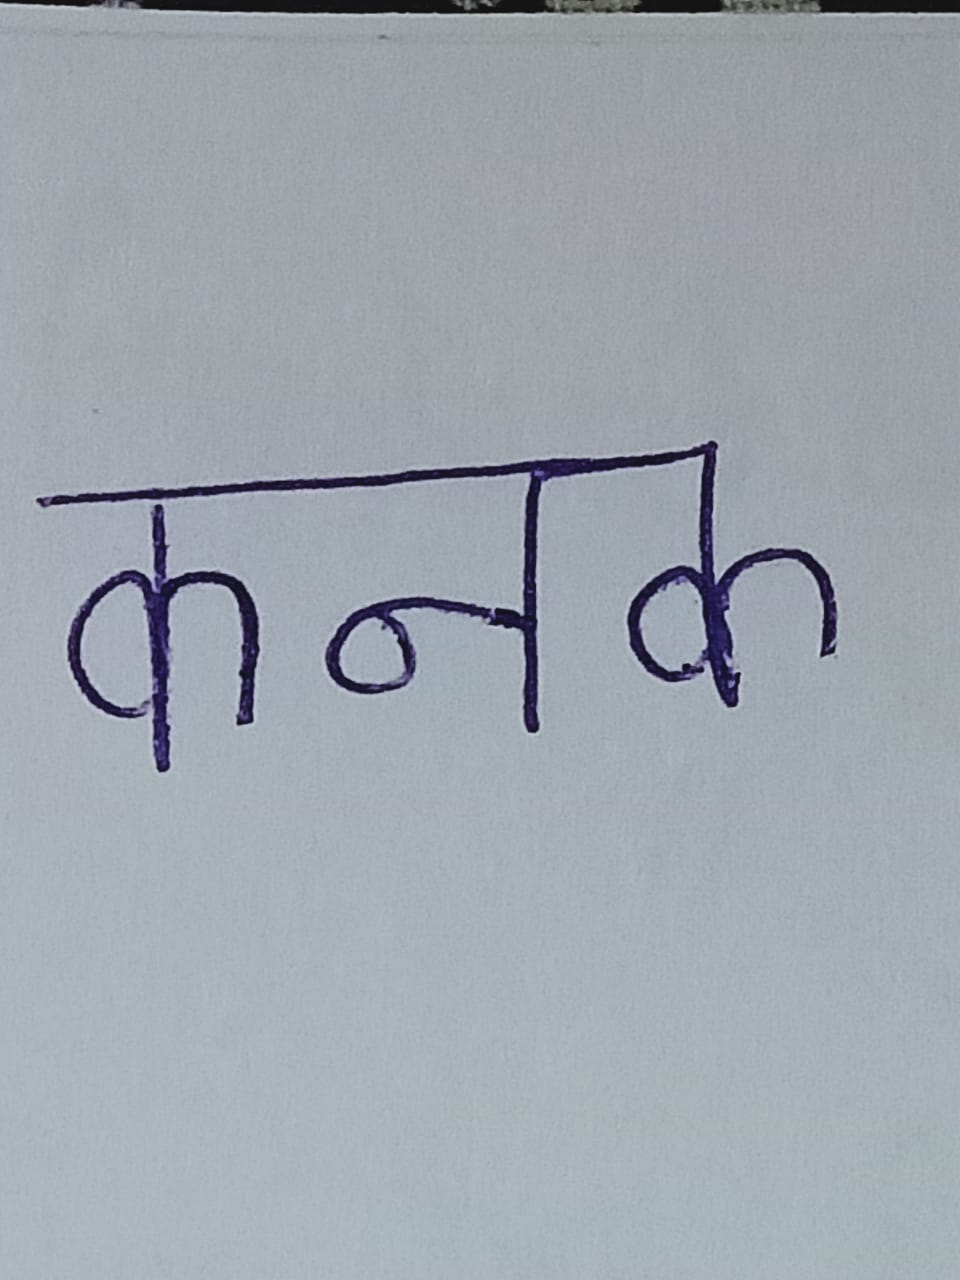 कनक